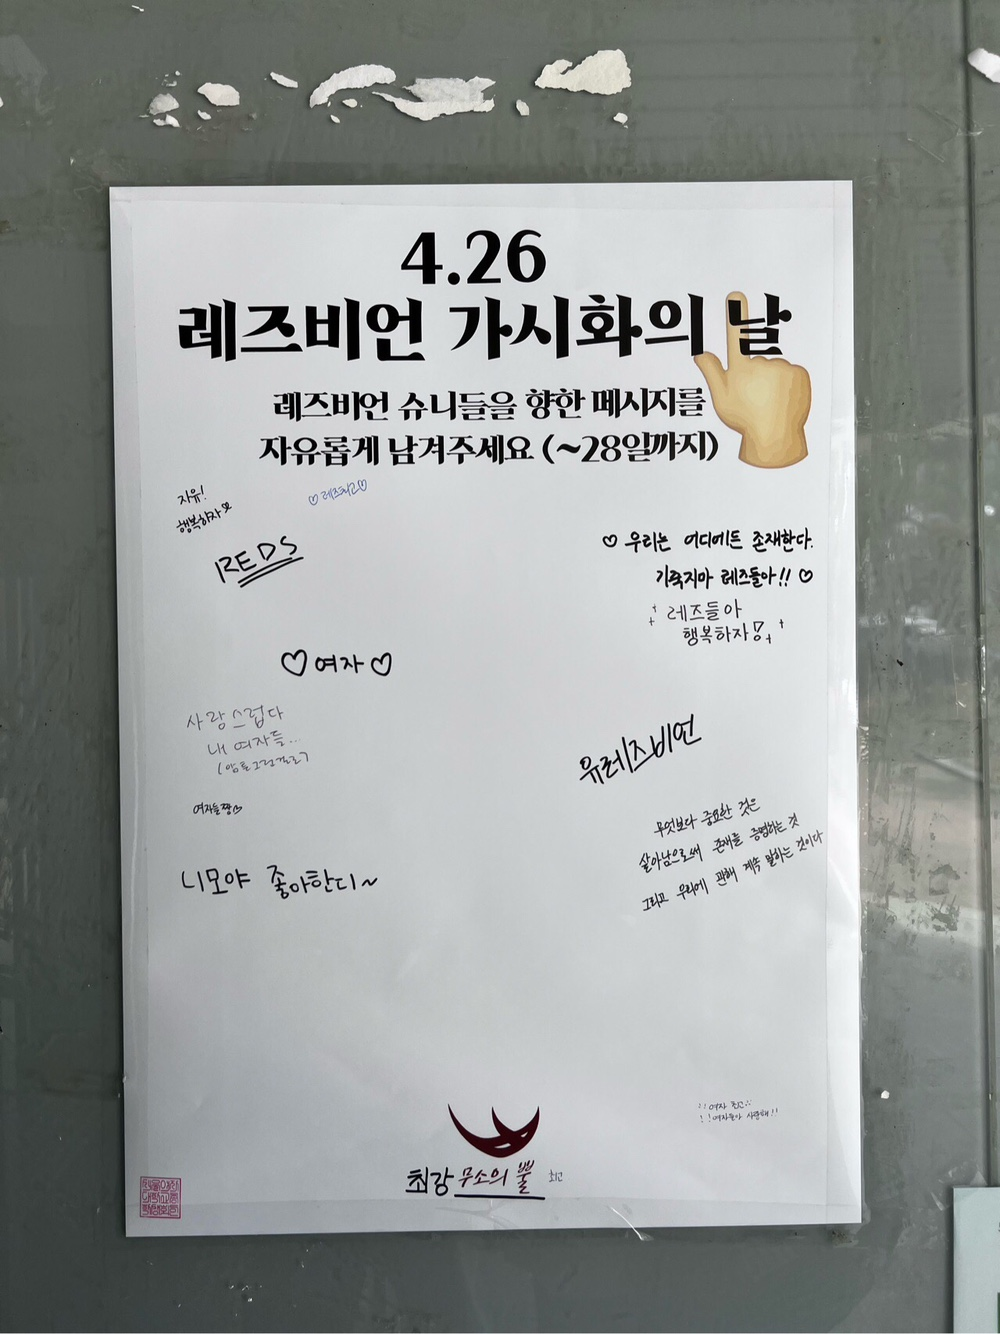 4.26
레즈비언 가시화의 날
레즈비언 슈니들을 향한 메시지를
자유롭게 남겨주세요 (~28일까지)
자유!
행복하자♡
♡레즈최고♡
REDS
♡ 우리는 어디에든 존재한다.
기죽지마 레즈들아!! ♡
레즈들아
행복하자!
♡ 여자 ♡
사랑스럽다
내 여자들...
유레즈비언
여자들짱♡
무엇보다 중요한 것은
살아남으로써 존재를 증명하는 것
그리고 우리에 관해 계속 말하는 것이다
니모야 좋아한디~
여자 최고
여자들아 사랑해!!
최강 무소의 뿔 최고